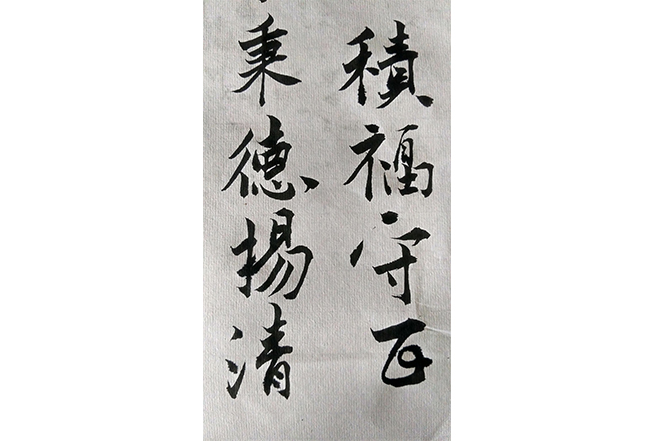 積福守正
秉德揚清